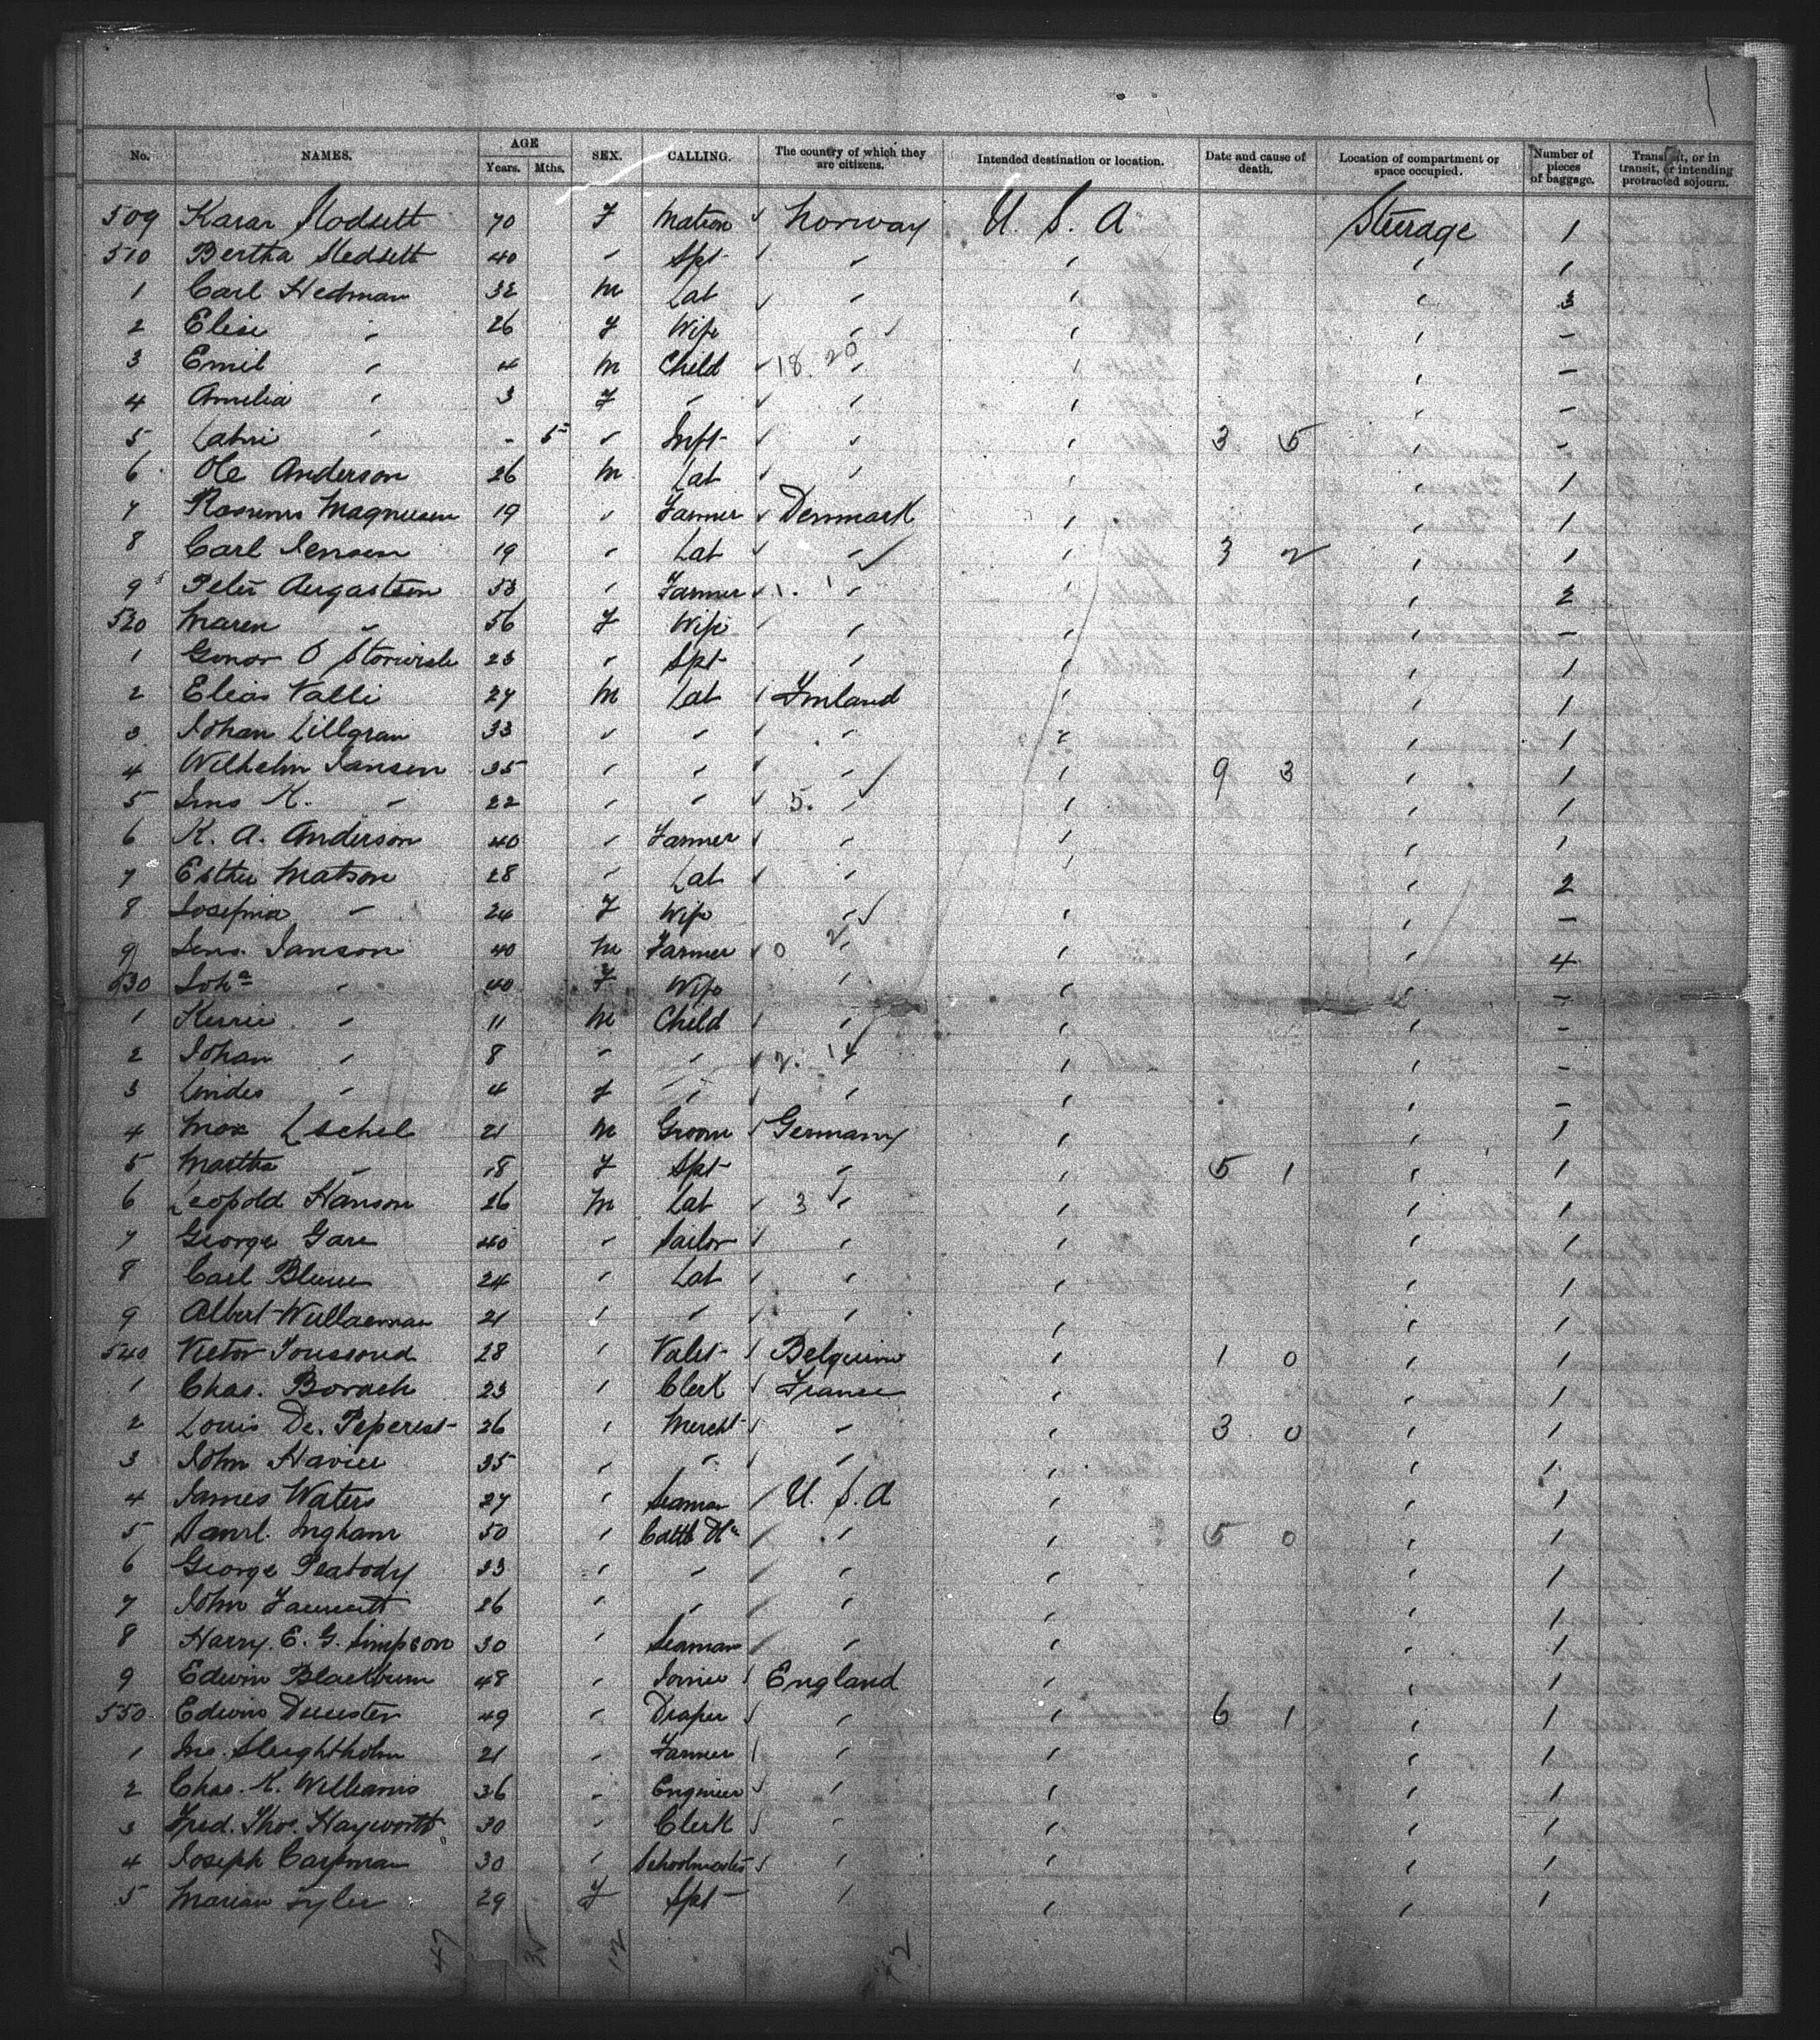 No. NAMES. AGE Years. Mths. SEX. CALLING. The country of which they are citizens. Intended destination or location. Date and cause of death. Location of compartment or space occupied. Number of pieces of baggage. Transit, or in transit, or intending protracted sojourn.
509 Karar Slodsett 70 F Matron Norway U. S. A Steerage 1
510 Bertha Sledsett 40 " Spt " " " 1
1 Carl Hedman 32 M Lab " " " 3
2 Elise " 26 F Wife " " " -
3 Emil " 4 M Child 18. 20 " " " -
4 Amelia " 3 F " " " " -
5 " - 5 " Inft " " 3 5 " -
6 Ole Anderson 26 M Lab " " 1
7 Rasmus Magnusen 19 " Farmer Denmark " " 1
8 Carl Jensen 19 " Lab " " 3 2 " 1
9 Peter Augastson 53 " Farmer " " " 2
520 Maren " 56 F Wife " " " -
1 Gonor O 23 " Spt " " " 1
2 Elias Valli 27 M Lab Finland " " 1
3 Johan Lillgran 33 " " " " " 1
4 Wilhelm Jansen 35 " " " " 9 3 " 1
5 Jns K. " 22 " " 5. " " " 1
6 K. A. Anderson 40 " Farmer " " " 1
7 Esther Matson 28 " Lab " " " 2
8 Josefina " 24 F Wife " " " -
9 Jens. Janson 40 M Farmer 0 2 " " " 4
530 Joha " 40 F Wife " " " -
1 Kerrie " 11 M Child " " " -
2 Johan " 8 " " 2. 14 " " -
3 Lindes " 4 F " " " " -
4 Max Eschel 21 M Groom Germany " " 1
5 Martha " 18 F Spt " " 5 1 " 1
6 Leopold Hanson 26 M Lab 3 " " " 1
7 George Gare 40 " Sailor " " " 1
8 Carl Blume 24 " Lab " " " 1
9 Albert Wullaeman 21 " " " " " 1
540 Victor Toussoud 28 " Valet Belguim " 1 0 " 1
1 Chas. Borach 23 " Clerk France " " 1
2 Louis De. Peperest 26 " Mercht " " 3 0 " 1
3 John Havier 35 " " " " " 1
4 James Waters 27 " Seaman U. S. A " " 1
5 Saml. Ingham 50 " Cattle Dlr " " 5 0 " 1
6 George Peabody 23 " " " " " 1
7 John Fawcett 26 " " " " " 1
8 Harry. E. G. Simpson 30 " Seaman " " " 1
9 Edwin Blackburn 48 " Joiner England " " 1
550 Edwin 49 " Draper " " 6 1 " 1
1 Jno. Sleightholm 21 " Farmer " " " 1
2 Chas. K. Williams 36 " Engineer " " " 1
3 Fred. Thos. Hayworth 30 " Clerk " " " 1
4 Joseph Carpman 30 " Schoolmaster " " " 1
5 Marian Tyler 29 F Spt " " " 1
47 35 12 42